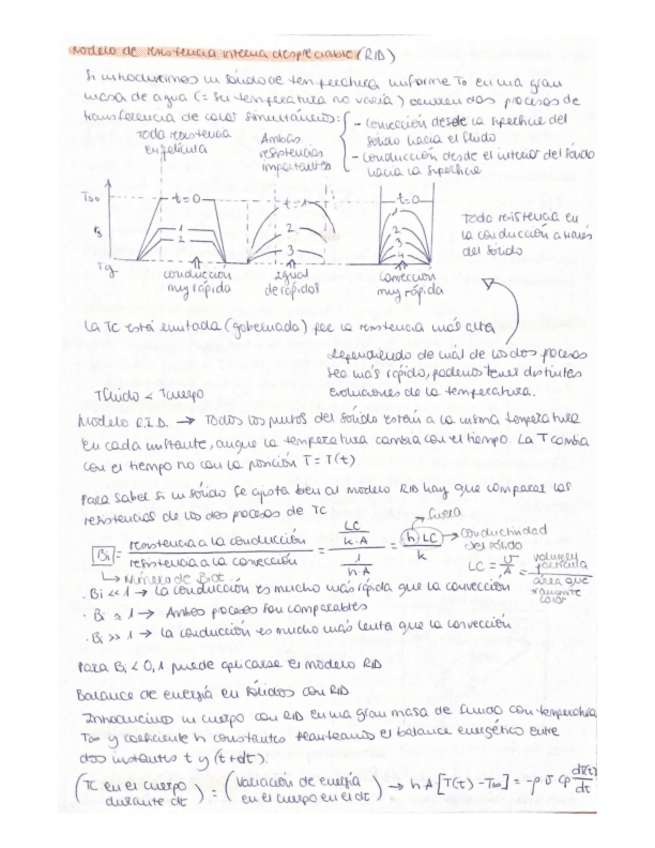 Modelo de resistencia interna despreciable (RID)
Si introducimos un sólido de temperatura uniforme To en una gran
masa de agua (= su temperatura no varía) ocurren dos procesos de
transferencia de calor simultáneos:
- Convección desde la superficie del
sólido hacia el fluido
- Conducción desde el interior del sólido
hacia la superficie
Toda resistencia
en película
Ambas
resistencias
importantes
T∞
t=0
1
2
Tg
conducción
muy rápida
2
3
igual
de rápidos
t=0
1
2
3
4
convección
muy rápida
Toda resistencia en
la conducción a través
del sólido
La TC está limitada (gobernada) por la resistencia más alta
Dependiendo de cuál de los dos procesos
sea más rápido, podemos tener distintas
evoluciones de la temperatura.
Tfluido < Tcuerpo
Modelo R.I.D. → Todos los puntos del sólido están a la misma temperatura
en cada instante, aunque la temperatura cambia con el tiempo. La T cambia
con el tiempo no con la posición T = T(t)
Para saber si un sólido se ajusta bien al modelo RID hay que comparar las
resistencias de los dos procesos de TC
Bi = resistencia a la conducción / resistencia a la convección = (LC / k·A) / (1 / h·A) = h LC / k
fluido
→ Conductividad
del sólido
LC = V/A = volumen partícula / área que transmite calor
→ Número de Biot
· Bi << 1 → la conducción es mucho más rápida que la convección
· Bi ≈ 1 → Ambos procesos son comparables
· Bi >> 1 → la conducción es mucho más lenta que la convección
Para Bi < 0,1 puede aplicarse el modelo RID
Balance de energía en sólidos con RID
Introducimos un cuerpo con RID en una gran masa de fluido con temperatura
T∞ y coeficiente h constantes planteando el balance energético entre
dos instantes t y (t+dt).
(TC en el cuerpo durante dt) = (Variación de energía en el cuerpo en el dt) → h A [T(t) - T∞] = -ρ V Cp dT(t)/dt